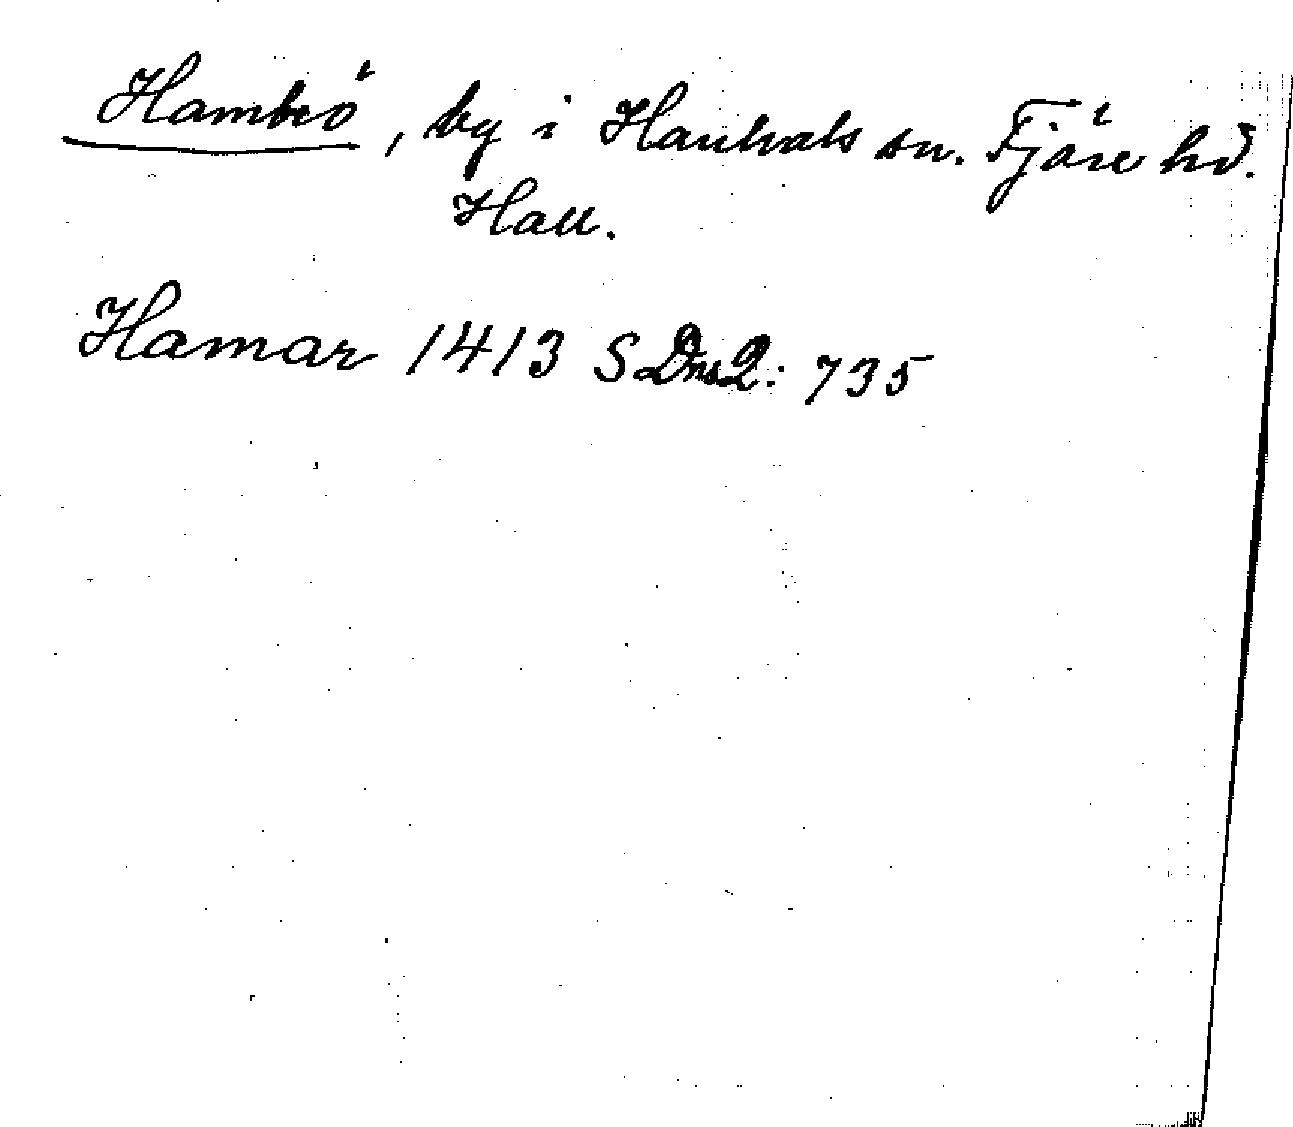 Hambrö, by i Hanhals sn. Fjäre hd.
Hall.
Hamar 1413 SDns2: 735